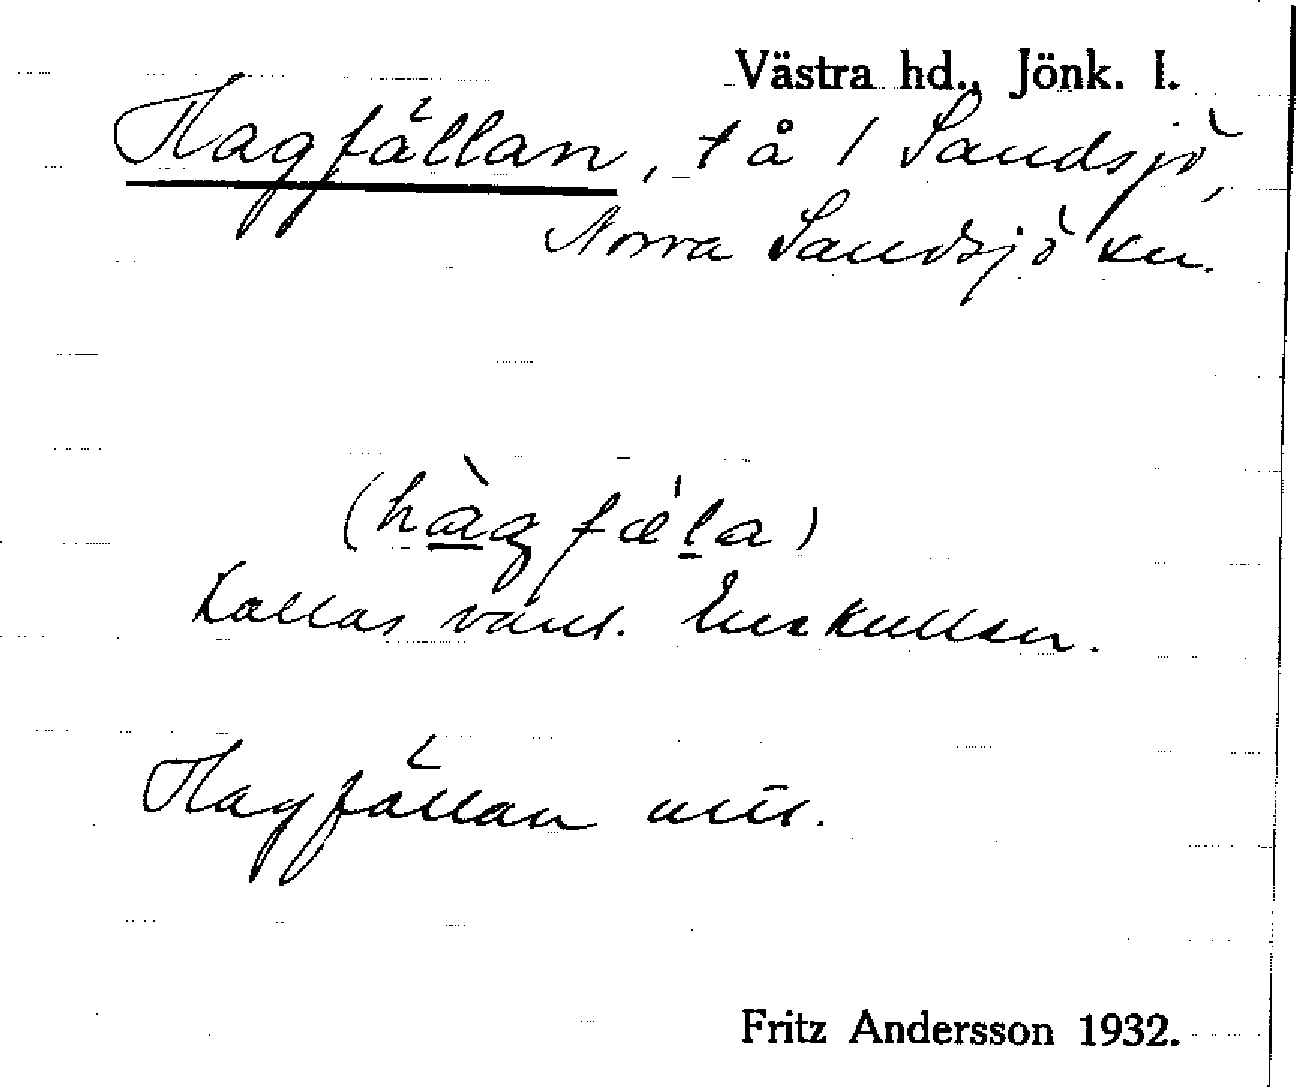 Västra hd., Jönk. l.
Hagfällan, tå / Sandsjö,
Norra Sandsjö sn.
(hàgfæ̍la)
Kallas vanl. Enekullen.
Hagfällan
Fritz Andersson 1932.